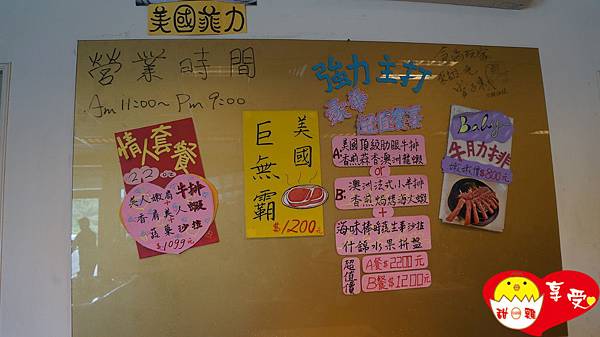 美國菲力
營業時間
Am 11:00~ Pm 9:00
強力主打
情人套餐
美人嫩肩牛排
香肩美人蝦
蔬菓沙拉
$1099元
美國
巨無霸
$1200元
A:美國頂級肋眼牛排
香煎蒜香澳洲龍蝦
or
B:澳洲法式小羊排
香煎焗烤海大蝦
+
海味棒時蔬生菜沙拉
什錦水果拼盤
超值價
A餐$2200元
B餐$1200元
Baby
牛肋排
$800元
甜雞
享受